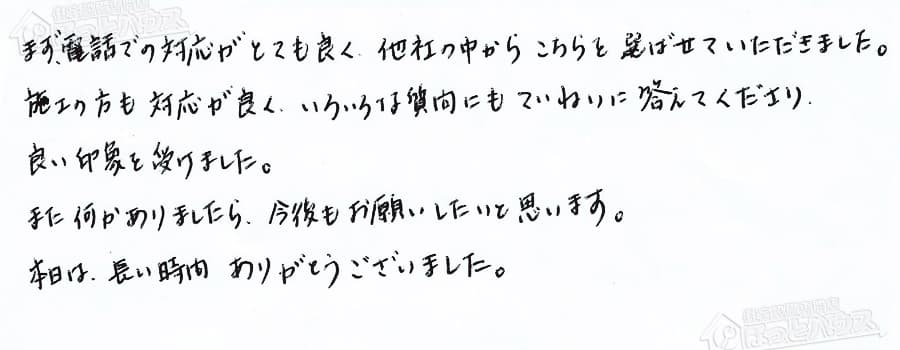 まず、電話での対応がとても良く、他社の中からこちらを選ばせていただきました。
施工の方も対応が良く、いろいろな質問にもていねいに答えてくださり、
良い印象を受けました。
また何かありましたら、今後もお願いしたいと思います。
本日は、長い時間ありがとうございました。
ほっとハウス